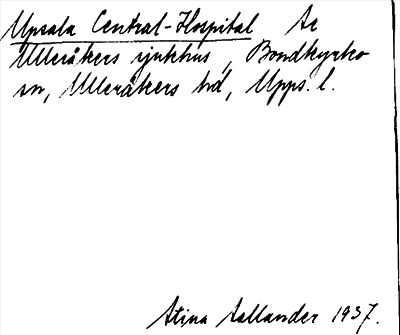 Upsala Central-Hospital se
Ulleråkers sjukhus, Bondkyrko
sn, Ulleråkers hd, Upps. l.
Stina Sallander 1937.